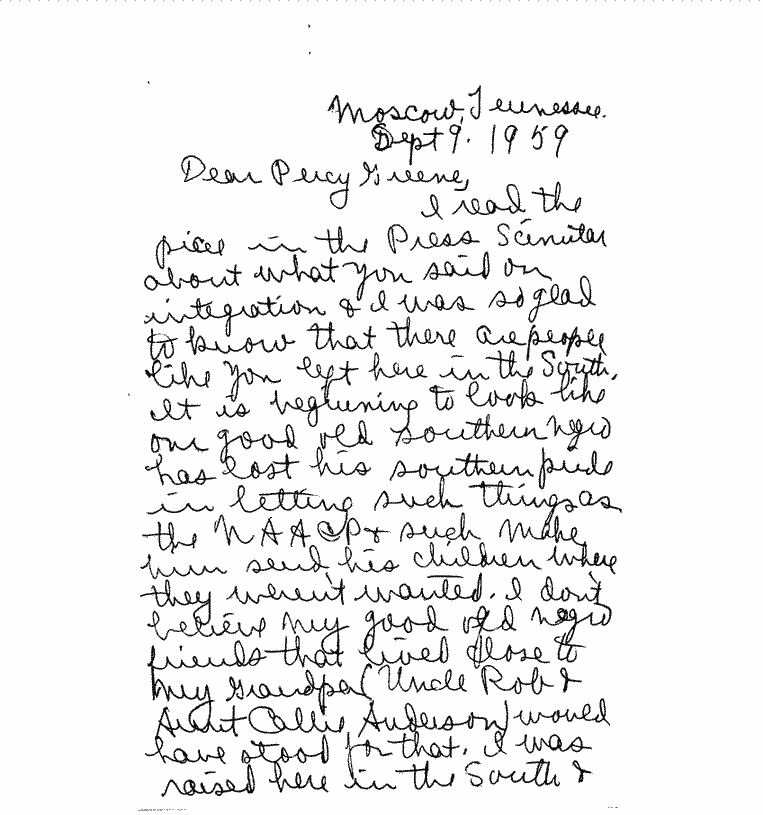 Moscow, Tennessee.
Sept 9. 1959
Dear Percy Greene,
I read the
piece in the Press Scimitar
about what you said on
integration & I was so glad
to know that there are people
like you left here in the South.
It is beginning to look like
our good old southern negro
has lost his southern pride
in letting such things as
the NAACP & such make
him send his children where
they weren't wanted. I don't
believe my good old negro
friends that lived close to
my Grandpa (Uncle Rob &
Aunt Callie Anderson) would
have stood for that. I was
raised here in the South &